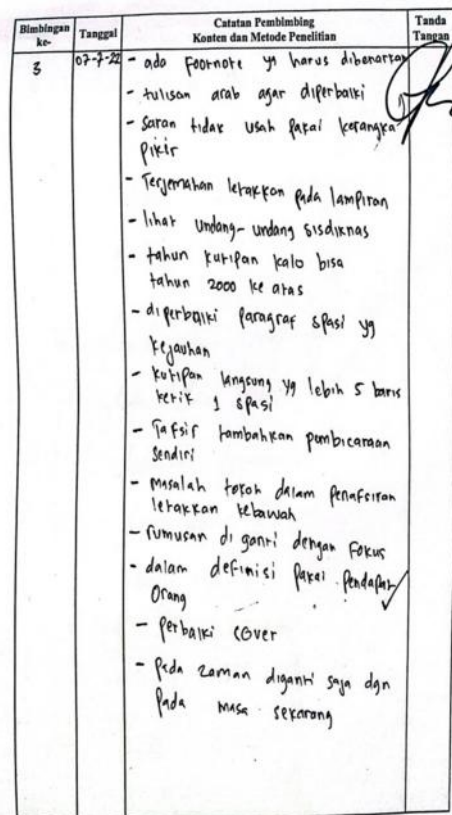 Bimbingan ke-
Tanggal
Catatan Pembimbing
Konten dan Metode Penelitian
Tanda Tangan
3
07-7-22
- ada Footnote yg harus dibenarkan
- tulisan arab agar diperbaiki
- Saran tidak usah pakai kerangka
pikir
- Terjemahan letakkan pada lampiran
- lihat undang-undang sisdiknas
- tahun kutipan kalo bisa
tahun 2000 ke atas
- diperbaiki paragraf spasi yg
kejauhan
- kutipan langsung yg lebih 5 baris
ketik 1 spasi
- Tafsir tambahkan pembicaraan
sendiri
- masalah tokoh dalam penafsiran
letakkan kebawah
- rumusan di ganti dengan Fokus
- dalam definisi pakai pendapat
orang
- perbaiki cover
- pada zaman diganti saja dgn
pada masa sekarang